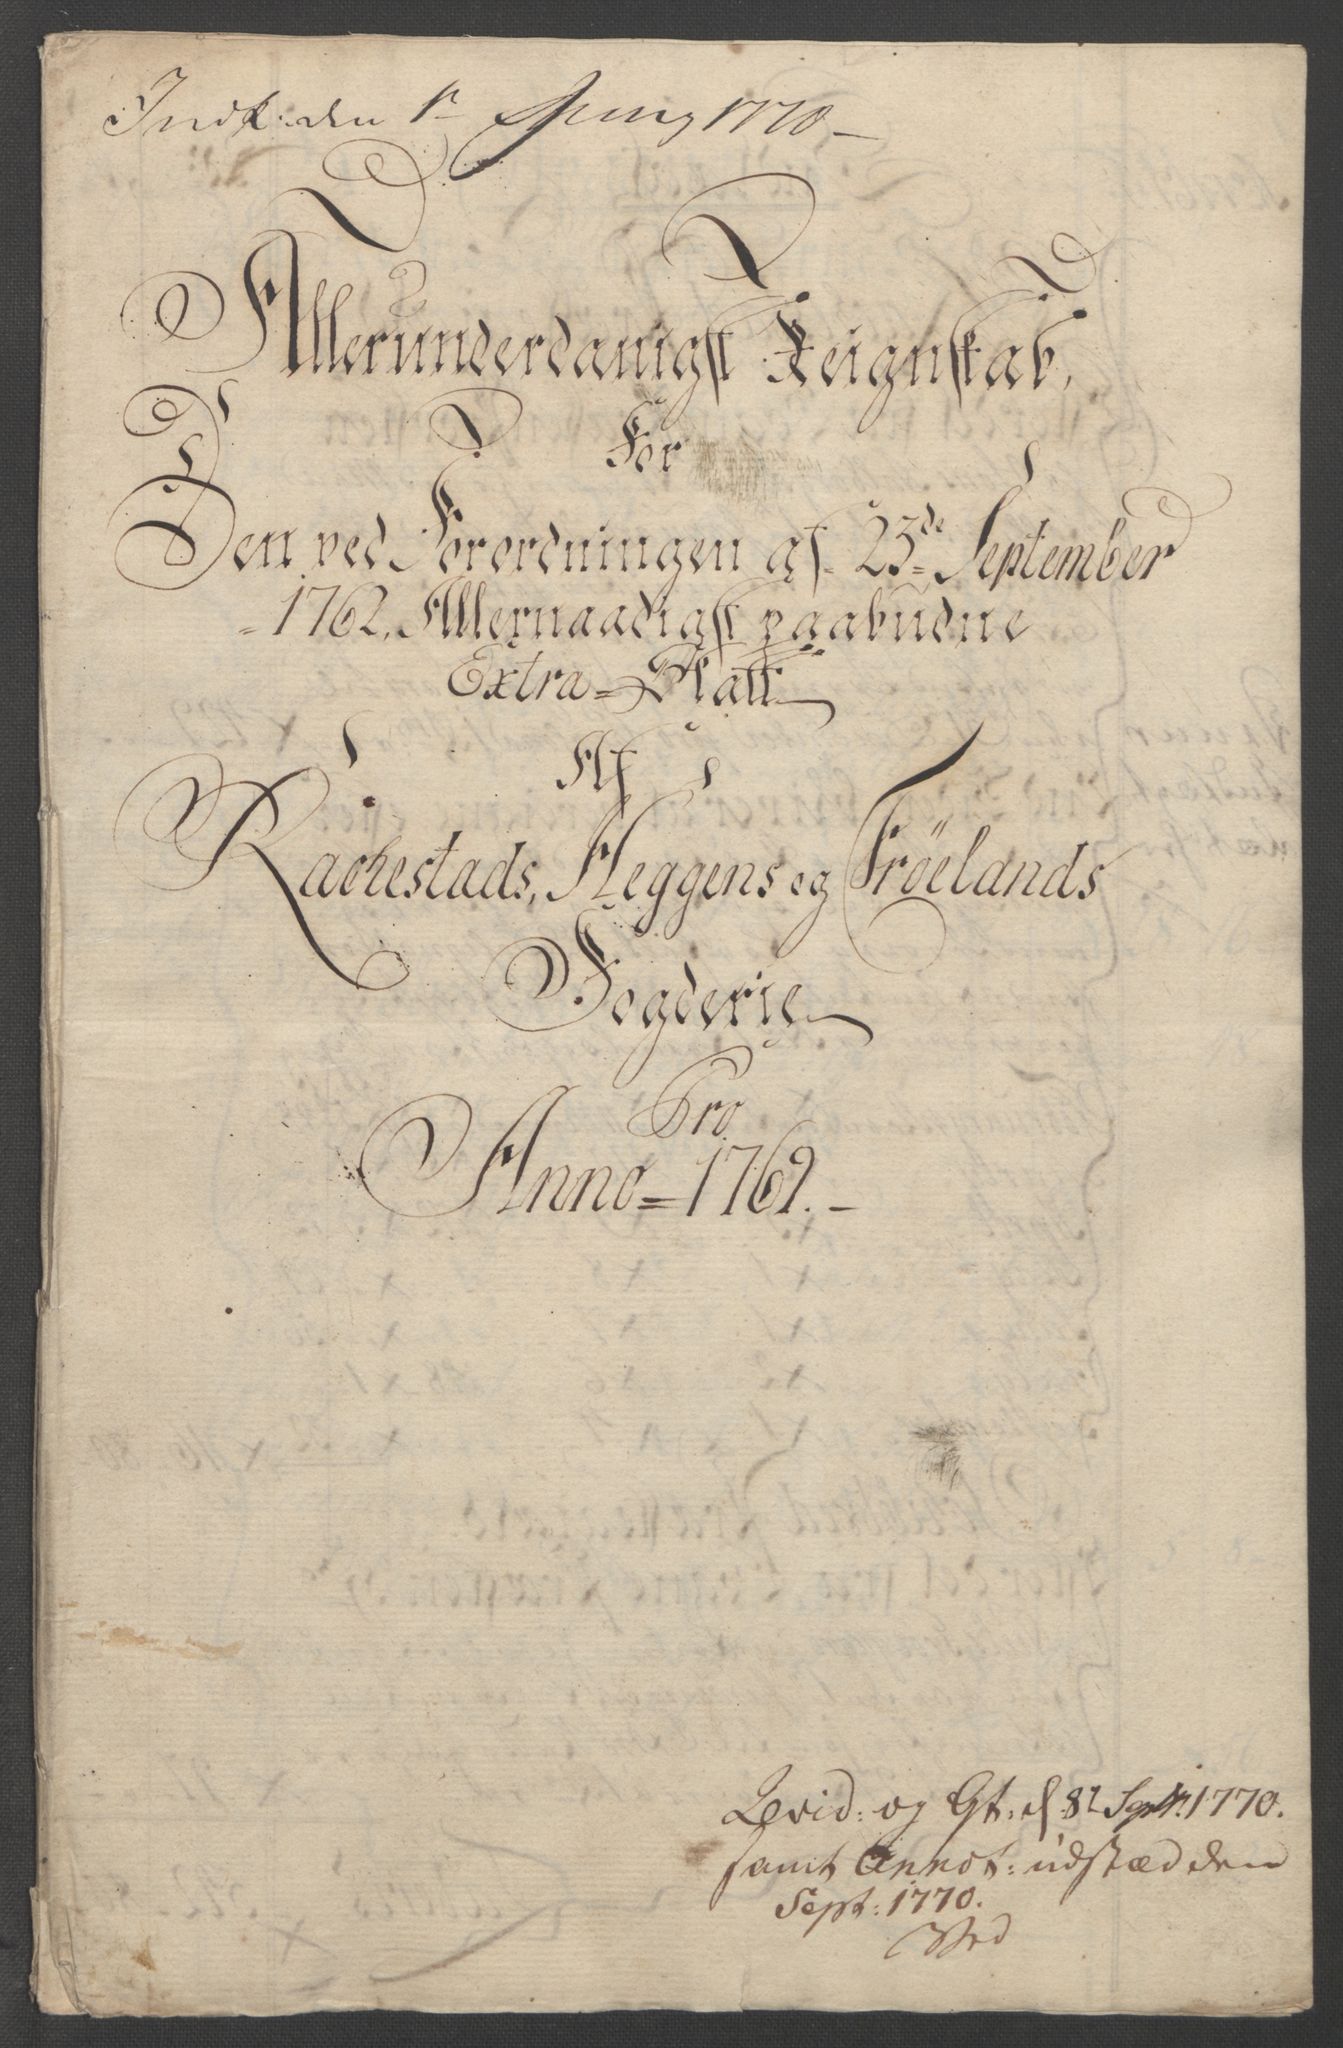 Indk: den 1r Juny 1770 –
Allerunderdanigst Reignskab,
For
Den ved Forordningen af 23de September
1762, Allernaadigst paabudne
Extra = Skatt
Af
Rachestads, Heggens og Fröelands
Fogderie
Pro
Anno = 1769. –
Revid: og Gt: d: 8t Septr: 1770.
samt Annot: udstæd den
Sept: 1770.